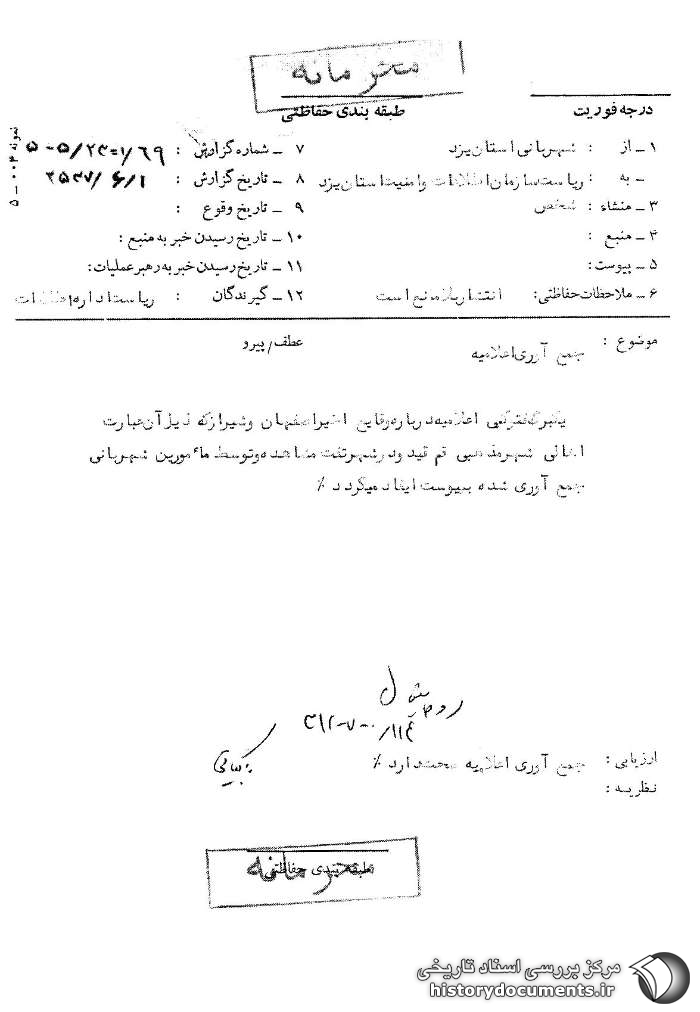 محرمانه
درجه فوریت
طبقه بندی حفاظتی
نمونه ۰۰۴ — ۵
۱ ـ از : شهربانی استان یزد
۷ ـ شماره گزارش : ۵-۵/۲۳۰۱/۶۹
ـ به : ریاست سازمان اطلاعات وامنیت استان یزد
۸ ـ تاریخ گزارش : ۲۵۳۷/۶/۱
۳ ـ منشاء : شخص
۹ ـ تاریخ وقوع :
۴ ـ منبع :
۱۰ ـ تاریخ رسیدن خبر به منبع :
۵ ـ پیوست :
۱۱ ـ تاریخ رسیدن خبر به رهبر عملیات :
۶ ـ ملاحظات حفاظتی : انتشار بلامانع است
۱۲ ـ گیرندگان : ریاست اداره اطلاعات
موضوع : جمع آوری اعلامیه
عطف/پیرو
یکبرگ فتوکپی اعلامیه درباره وقایع اخیر اصفهان وشیراز که ذیل آن عبارت
اهالی شهر مذهبی قم قید ودر شهر تفت مشاهده وتوسط مأمورین شهربانی
جمع آوری شده بپیوست ایفاد میگردد ٪
ارزیابی : جمع آوری اعلامیه صحت دارد ٪
نظریه :
طبقه بندی حفاظتی
محرمانه
مرکز بررسی اسناد تاریخی
historydocuments.ir